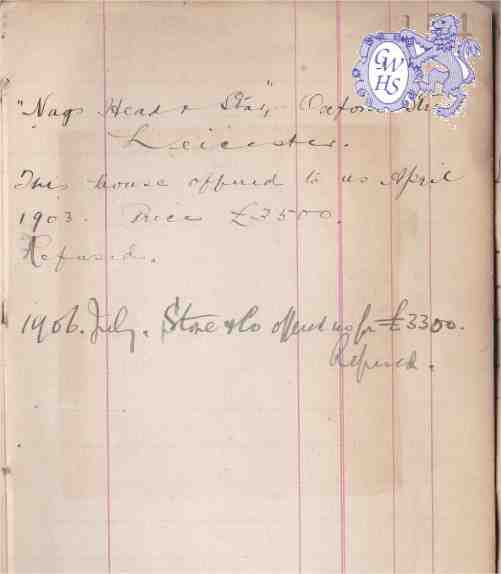 "Nags Head & Star", Oxford Str
Leicester.
This house offered to us April
1903. Price £3500.
Refused.
1906. July. Stone & Co offered us for £3300.
Refused.
GW
HS